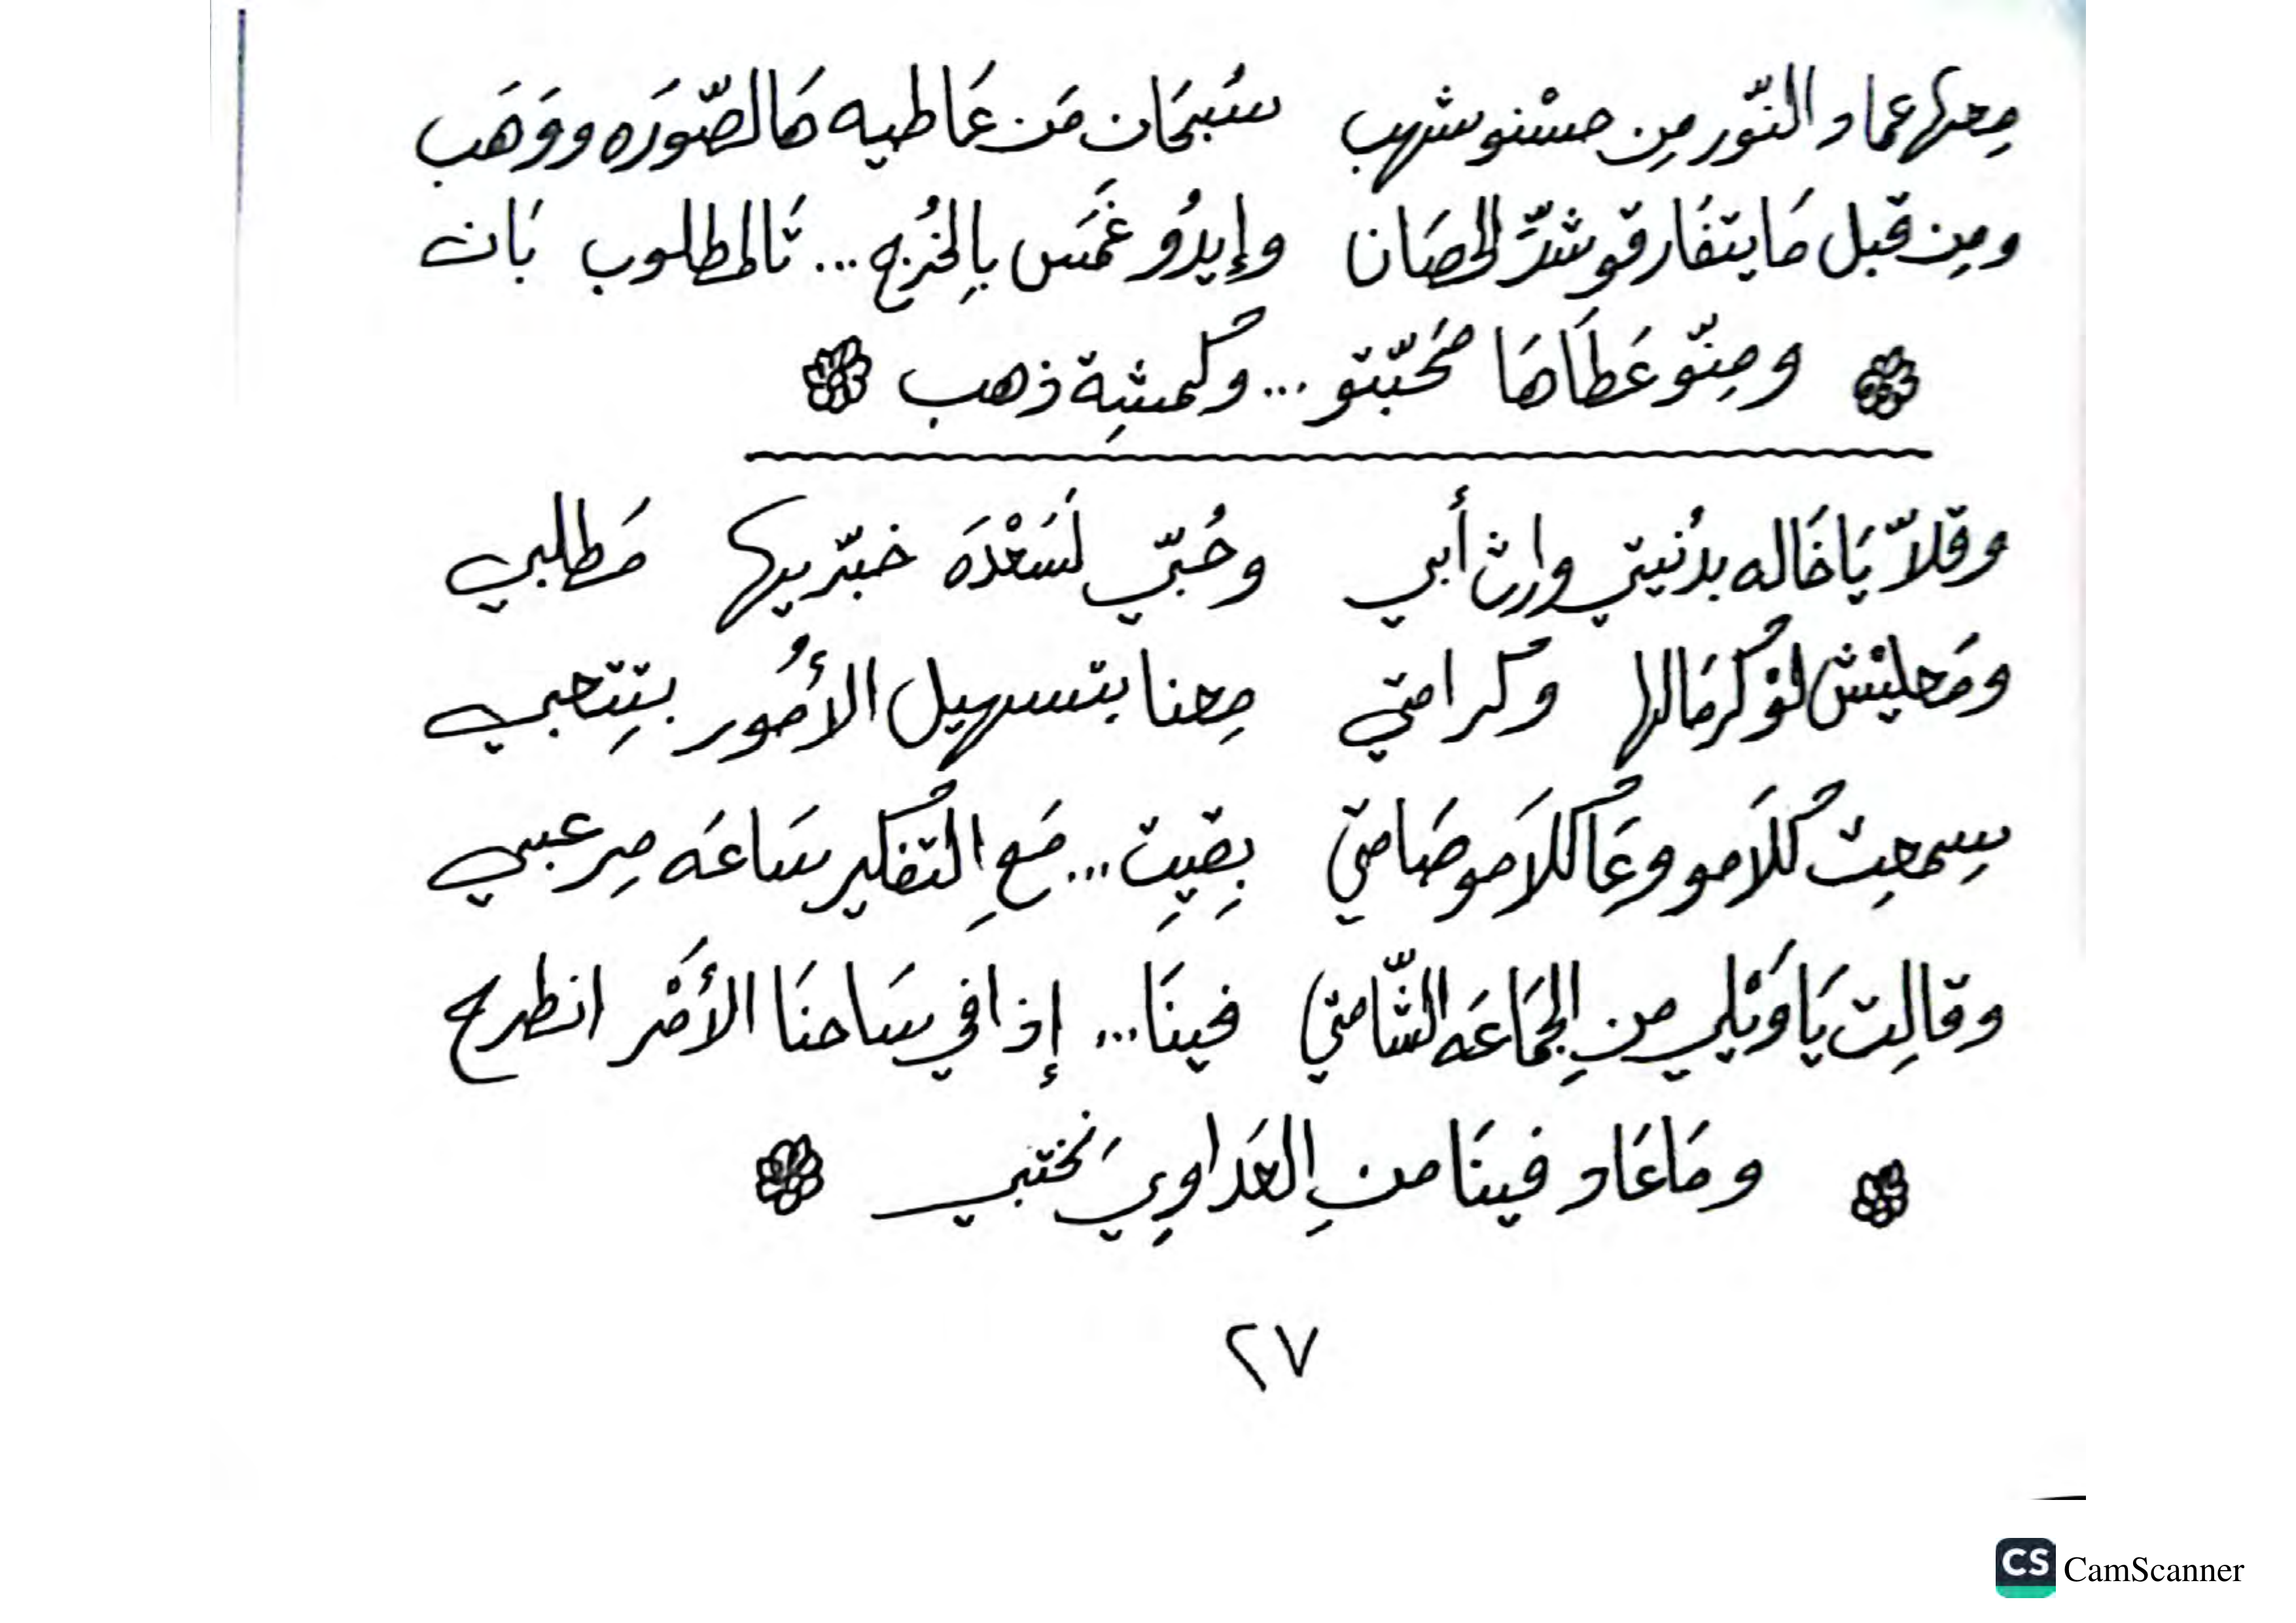 مِعها عماد النّور مِن حسْنو شهب سُبحَان مَن عَاطيه هَالصّورَه ووَهَب
ومِن قبل مَا يتفَارقو شدِّ الحصَان وإيدُو غمَّس بالِخُرج... تَالمطلوب بَان
ومِنّو عَطَاهَا مْحَبّتو... وكمشِة ذهب
وقلاّ يَا خَاله بدُنيتي وارث أبي وحُبّي لَسَعْدَه خبّريها مَطلبي
ومَعليْش لوْ كرمَالها وكرامتي مِعنا بتسهيل الأمُور بتِتعبي
سِمعِت كلَامو وعَا كلَامو صَامتي بِقيِت... مَعِ التفكير سَاعَه مِرعبي
وقالِت يَا وَيْلي من الِجمَاعَه الشّامتي فينَا... إذا في سَاحنَا الأمْر انطرح
ومَا عَاد فينَا منِ العَداوِي نختبي
٢٧
CS CamScanner